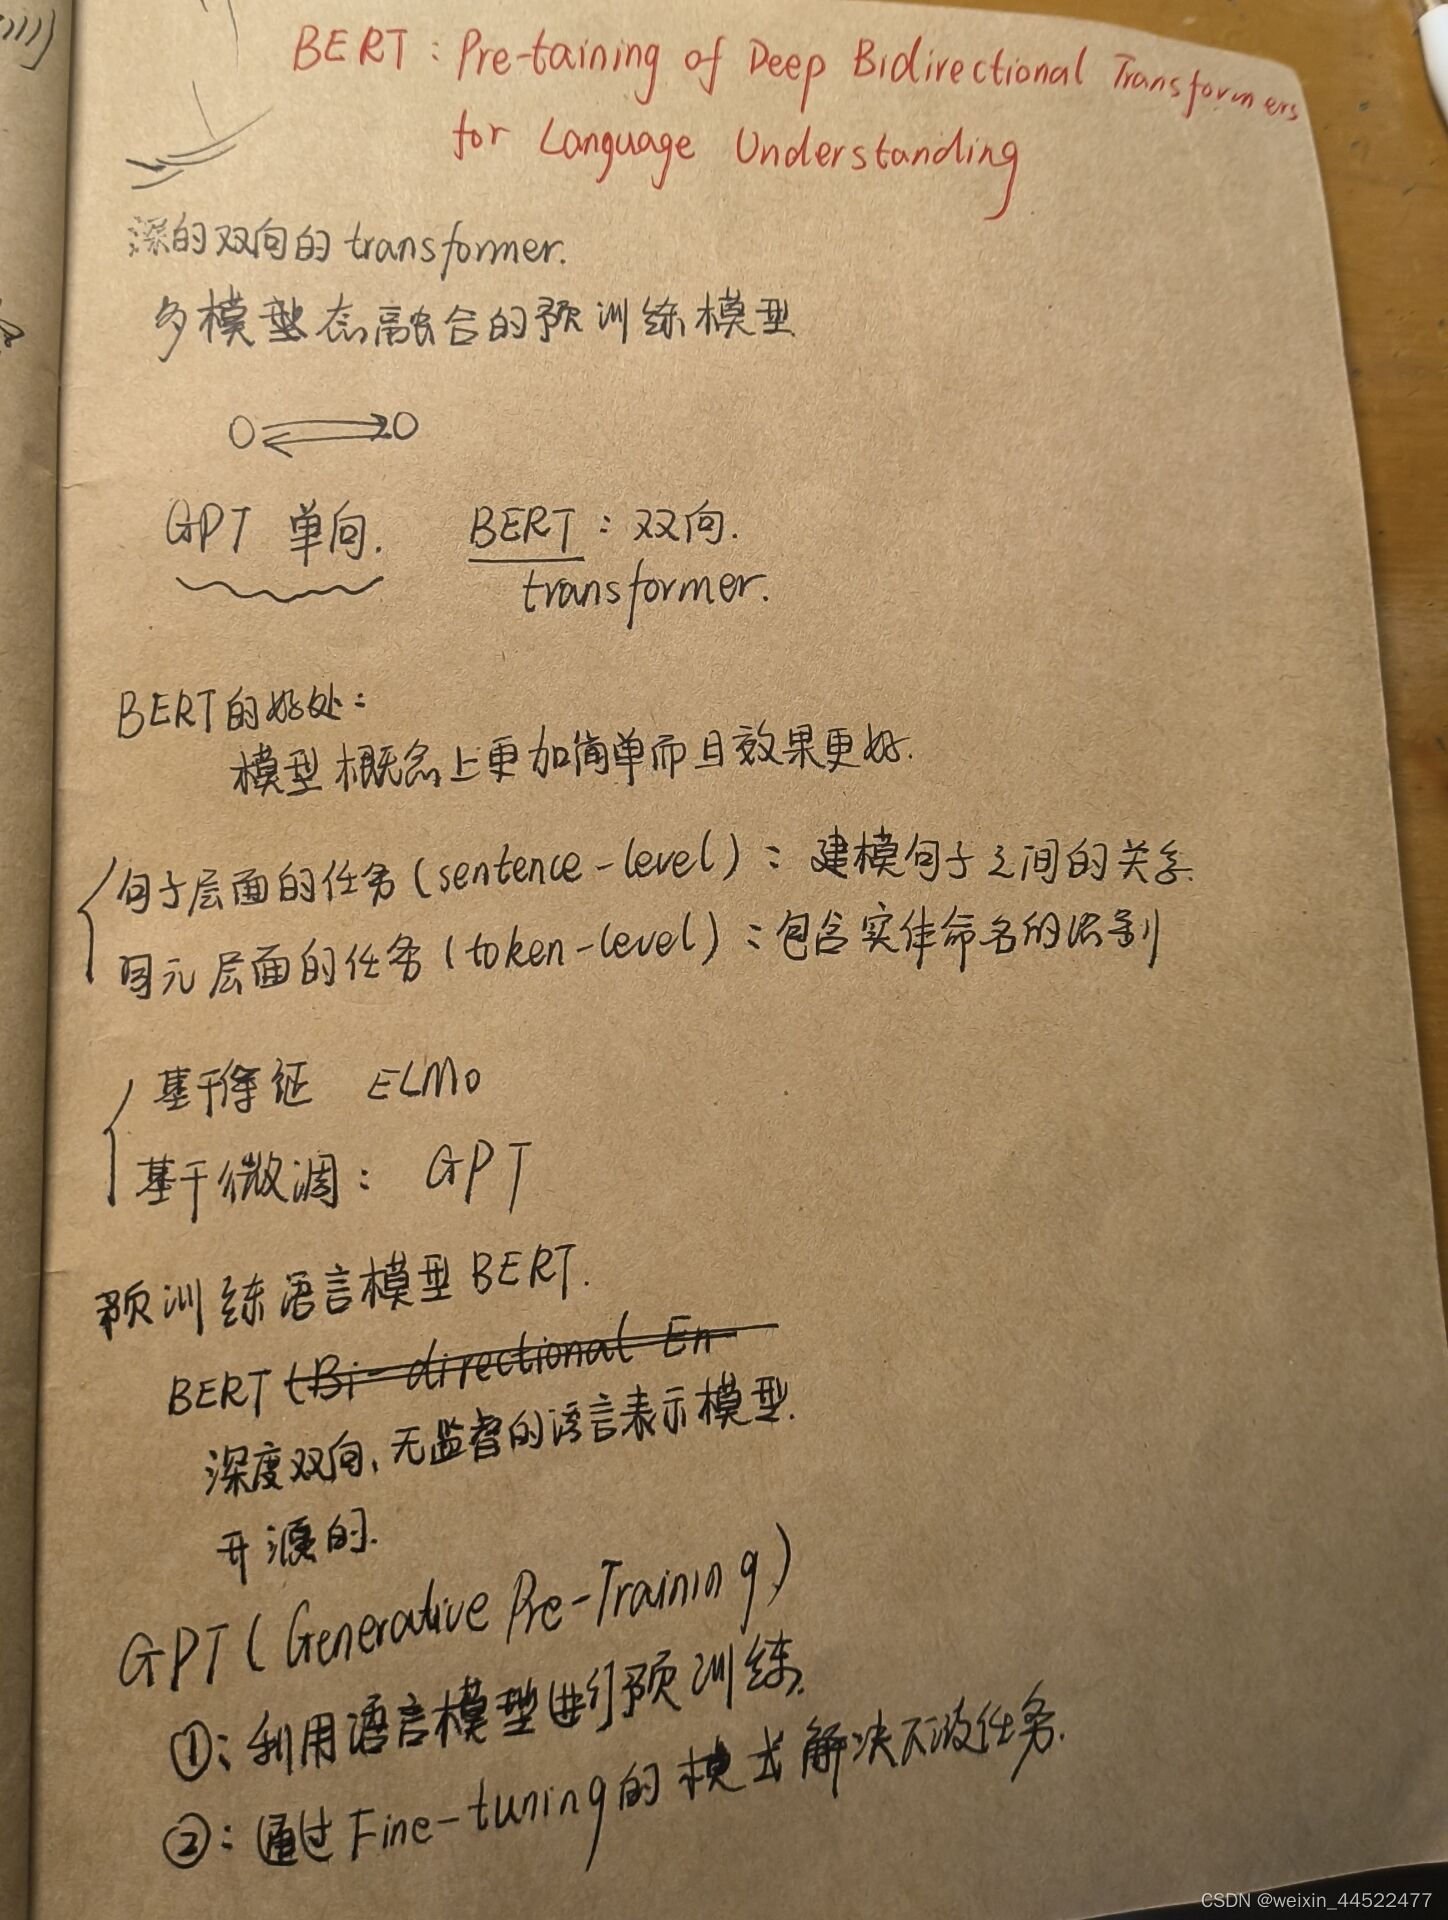 BERT : Pre-taining of Deep Bidirectional Transformers
for Language Understanding
深的双向的 transformer.
多模型态融合的预训练模型
GPT 单向. BERT : 双向.
transformer.
BERT的好处：
模型概念上更加简单而且效果更好.
句子层面的任务 (sentence-level) : 建模句子之间的关系.
词元层面的任务 (token-level) : 包含实体命名的识别
基于特征 ELMo
基于微调 : GPT
预训练语言模型 BERT.
BERT (Bi-directional En-
深度双向、无监督的语言表示模型.
开源的.
GPT ( Generative Pre-Training )
①: 利用语言模型进行预训练.
②: 通过 Fine-tuning 的模式解决下波任务.
CSDN @weixin_44522477